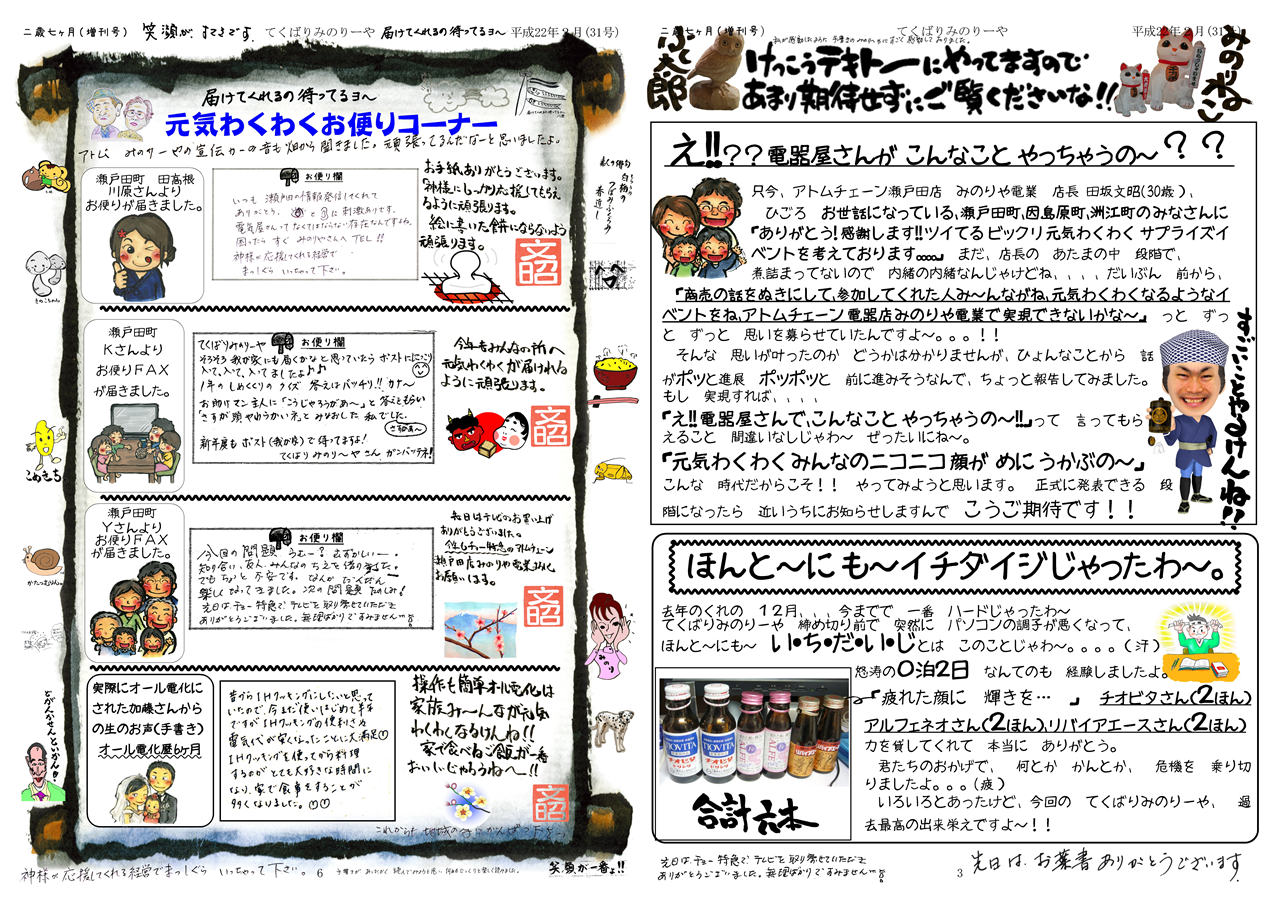 二歳七ヶ月(増刊号)
笑顔が すてきです。
てくばりみのりーや
届けてくれるの待ってるヨ～
平成22年2月(31号)
届けてくれるの待ってるヨ～
元気わくわくお便りコーナー
アトム みのりーやの宣伝カーの音も畑から聞きました。頑張ってるんだなーと思いましたよ。
瀬戸田町 田高根
川原さんより
お便りが届きました。
お便り欄
いつも 瀬戸田の情報発信してくれて
ありがとう。
電気屋さんってなくてはならない存在なんですよね。
困ったら すぐ みのりやさんへ TEL!!
神様が応援してくれる経営で
まっしぐら いっちゃって下さい。
お手紙ありがとうございます。
「神様にしっかり応援してもらえ
るように頑張ります。
絵に書いた餅にならないよう
頑張ります。
文昭
瀬戸田町
Kさんより
お便りFAX
が届きました。
お便り欄
てくばりみのりーや
そろそろ我が家にも届くかなと思っていたら ポストににこり
入って、入って、入ってましたよ♪♪
1年のしめくくりのクイズ 答えはバッチリ!! カナ～
お助けマン主人に「こうじゃろうがあ～」と答えてもらい
「さすが頭やわらかい先」とみなおした 私でした。
さすがあ～
新年度も ポスト(我が家)で待ってますよ!
てくばりみのり～や さん ガンバッテネ!
今年もみんなの所へ
元気わくわくが届けれる
ように頑張ります。
文昭
瀬戸田町
Yさんより
お便りFAX
が届きました。
お便り欄
今回の問題 うむー? むずかしいー。
楽しくなってきました。次の問題 たのしみ!
先日はチョー特急で テレビを取り寄せていただきて
ありがとうございました。無理ばかりですみません
先日はテレビのお買い上げ
ありがとうございました。
瀬戸田店みのりや電業 を
お願いします。
文昭
実際にオール電化に
された加藤さんから
の生のお声(手書き)
オール電化屋6ヶ月
昔からIHクッキングにしたいと思って
いたので、今まだ使いはじめて半年
ですが IHクッキングの便利さと
電気代が安くなったことに大満足
IHクッキングを使ってから料理
するのが とても大好きな時間に
なり、家で食事をすることが
多くなりました。
操作も簡単オール電化は
家族み～んなが元気
わくわくなるけんね!!
家で食べるご飯が一番
おいしいじゃろうね～!!
文昭
きのこちゃん
こめきち
かたつむりん。
みのり
どがんかせんといかん!
神様が応援してくれる経営でまっしぐら いっちゃって下さい。
6
笑顔が一番ょ!!
二歳七ヶ月(増刊号)
てくばりみのりーや
平成22年2月(31号)
ふく太郎
けっこうテキトーにやってますので
あまり期待せずにご覧くださいな!!
みのねこ
え!!??電器屋さんが こんなこと やっちゃうの～??
只今、アトムチェーン瀬戸田店 みのりや電業 店長 田坂文昭(30歳)、
ひごろ お世話になっている、瀬戸田町、因島原町、洲江町のみなさんに
『ありがとう!感謝します!!ツイてるビックリ元気わくわく サプライズイ
ベントを考えております。。。。』 まだ、店長の あたまの中 段階で、
煮詰まってないので 内緒の内緒なんじゃけどね、、、、だいぶん 前から、
『商売の話をぬきにして、参加してくれた人み～んながね、元気わくわくなるようなイ
ベントをね、アトムチェーン電器店みのりや電業で実現できないかな～』 っと ずっ
と ずっと 思いを募らせていたんですよ～。。。!!
そんな 思いが叶ったのか どうかは分かりませんが、ひょんなことから 話
がポッと進展 ポッポッと 前に進みそうなんで、ちょっと報告してみました。
もし 実現すれば、、、、
『え!!電器屋さんで、こんなこと やっちゃうの～!!』って 言ってもら
えること 間違いなしじゃわ～ ぜったいにね～。
『元気わくわくみんなのニコニコ顔が めにうかぶの～』
こんな 時代だからこそ!! やってみようと思います。 正式に発表できる 段
階になったら 近いうちにお知らせしますんで こうご期待です!!
すごいことやるけんね!!
ほんと～にも～イチダイジじゃったわ～。
去年のくれの 12月、、、今までで 一番 ハードじゃったわ～
てくばりみのりーや 締め切り前で 突然に パソコンの調子が悪くなって、
ほんと～にも～ い・ち・だ・い・じとは このことじゃわ～。。。。(汗)
怒涛の0泊2日 なんてのも 経験しましたよ。
『疲れた顔に 輝きを… 』 チオビタさん(2ほん)
アルフェネオさん(2ほん)、リバイアエースさん(2ほん)
力を貸してくれて 本当に ありがとう。
君たちのおかげで、 何とか かんとか、 危機を 乗り切
りましたよ。。。(疲)
いろいろとあったけど、今回の てくばりみのりーや、 過
去最高の出来栄えですよ～!!
合計六本
先日は、チョー特急で テレビを取り寄せていただきて
ありがとうございました。無理ばかりですみません
3
先日は、お葉書ありがとうございます。